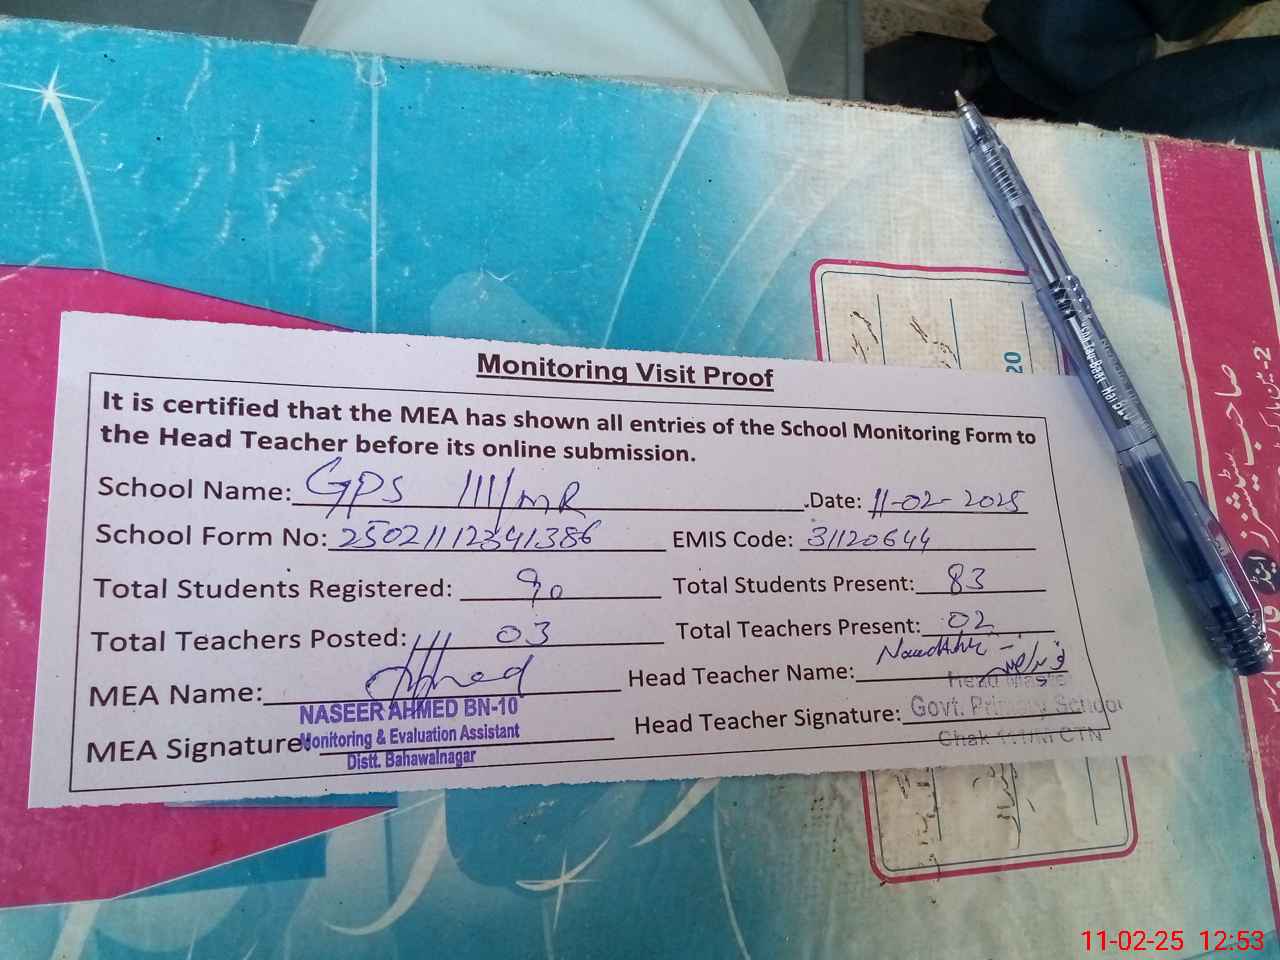 Monitoring Visit Proof
It is certified that the MEA has shown all entries of the School Monitoring Form to
the Head Teacher before its online submission.
School Name: GPS 111/mR .Date: 11-02-2025
School Form No: 25021112341386 EMIS Code: 31120644
Total Students Registered: 90 Total Students Present: 83
Total Teachers Posted: 03 Total Teachers Present: 02
MEA Name: Head Teacher Name:
NASEER AHMED BN-10
Monitoring & Evaluation Assistant
Distt. Bahawalnagar
MEA Signature: Head Teacher Signature:
Head Master
Govt. Primary School
Chak 111/M CTN
20
صاحب سٹیشنرز اینڈ
11-02-25 12:53